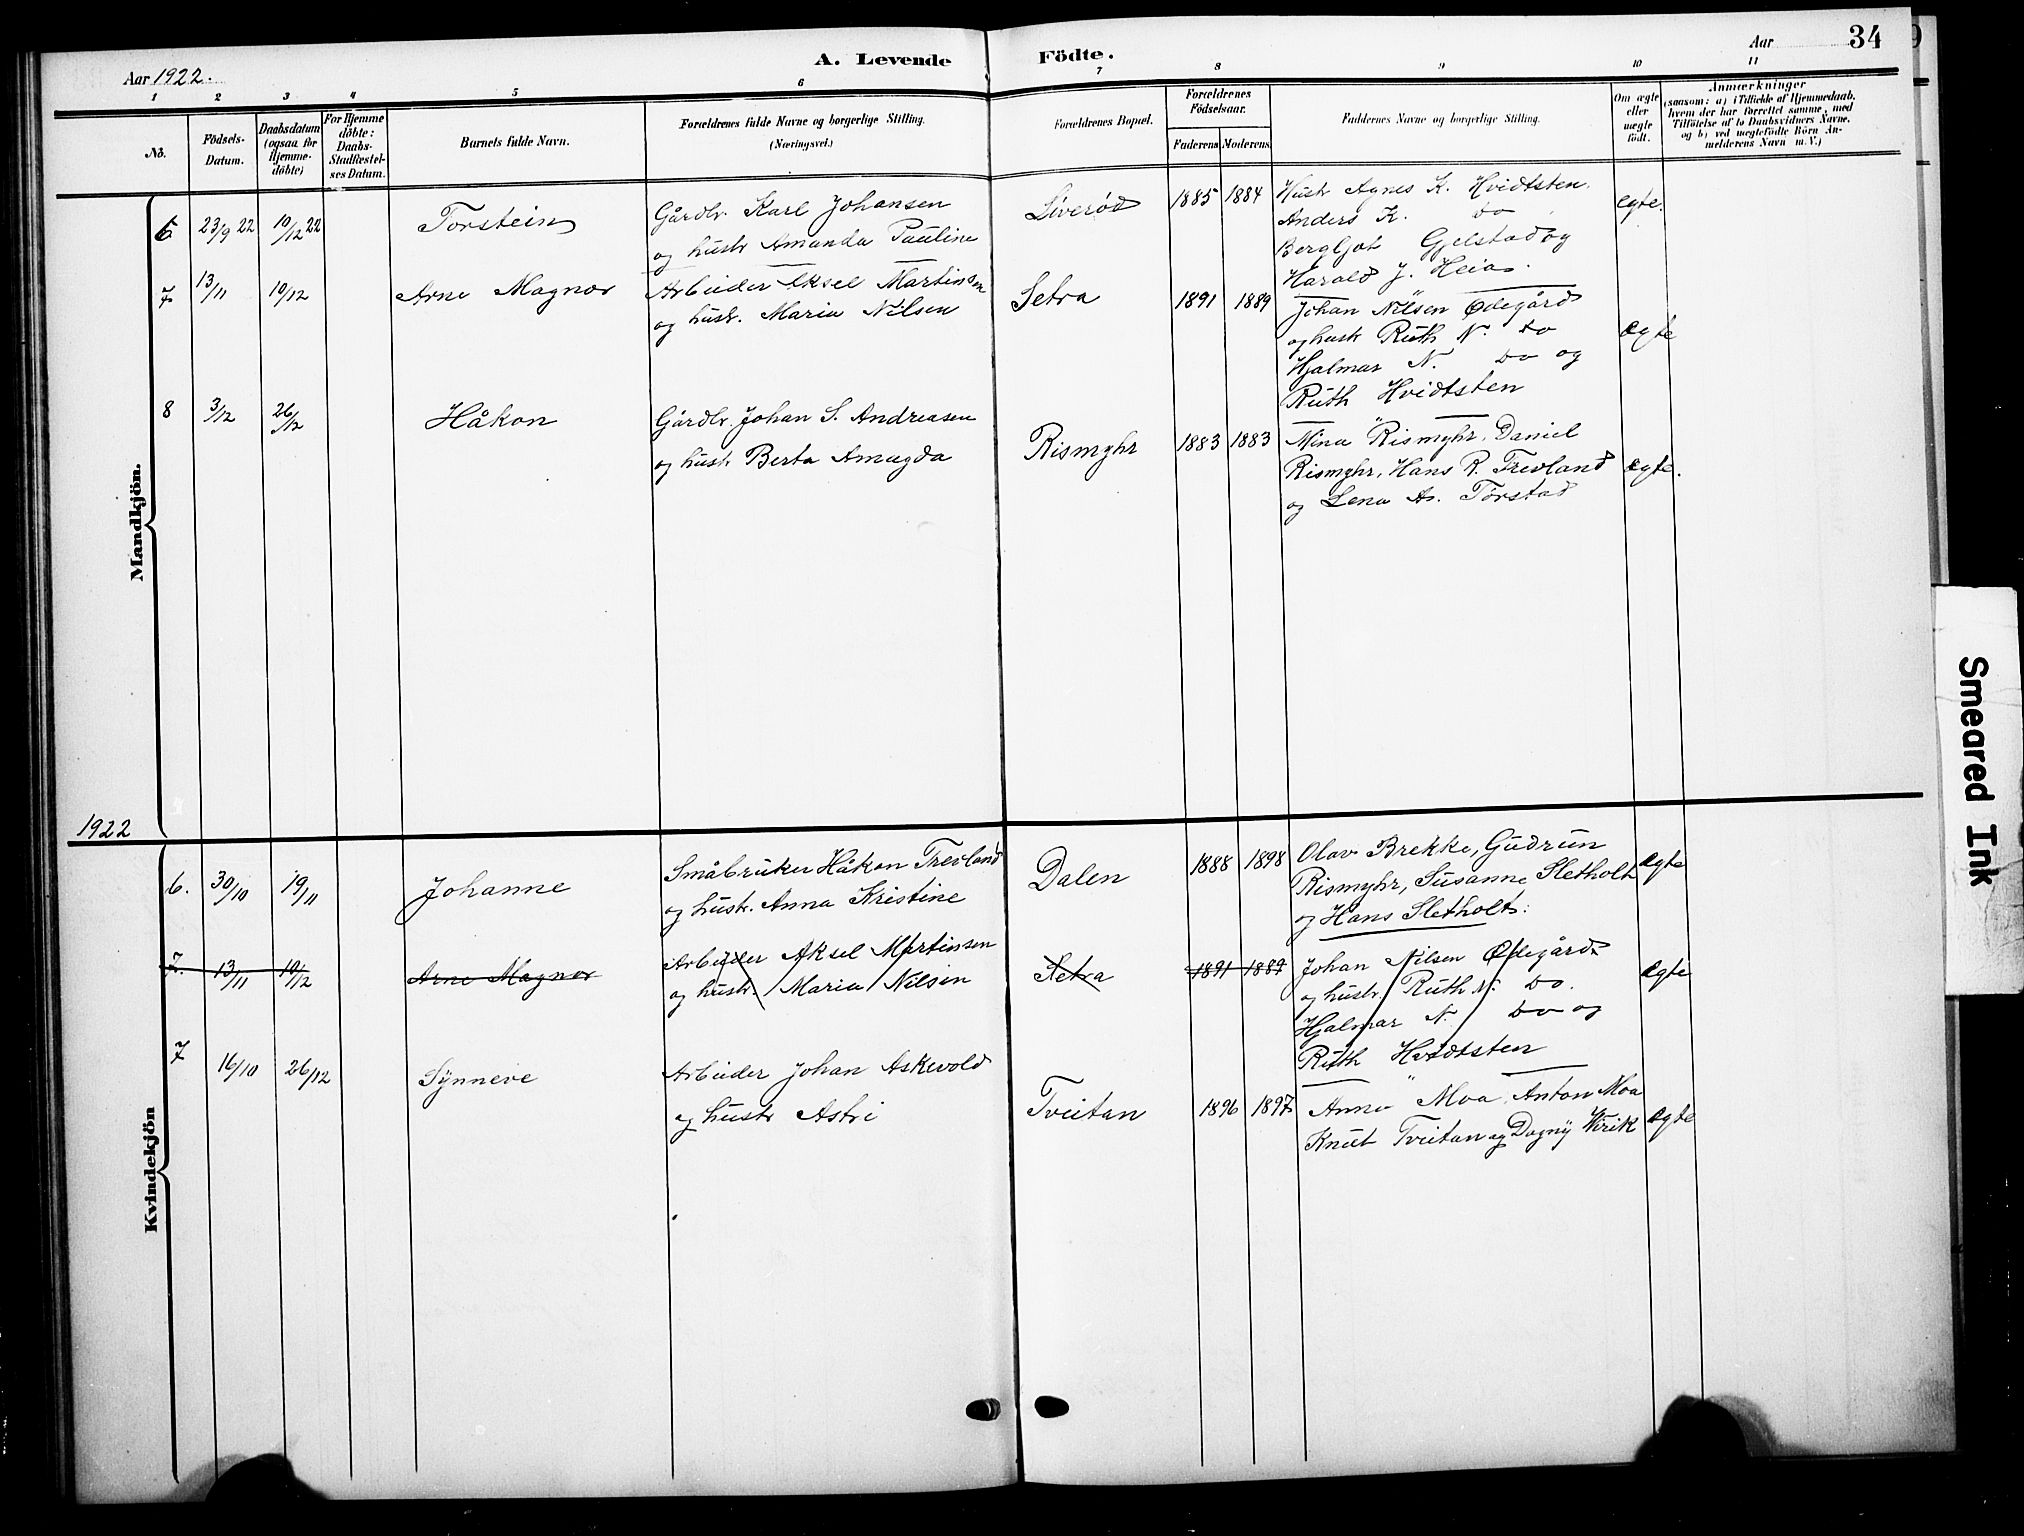 A. Levende Födte.
Aar 1922.
Aar 34
1 2 3 4 5 6 7 8 9 10 11
No.
Födsels-
Datum.
Daabsdatum
(ogsaa for
Hjemme-
döbte)
For Hjemme
döbte:
Daabs-
Stadfæstel-
ses Datum.
Barnets fulde Navn.
Forældrenes fulde Navne og borgerlige Stilling.
(Næringsvei.)
Forældrenes Bopæl.
Forældrenes
Födselsaar.
Faderens Moderens
Faddernes Navne og borgerlige Stilling.
Om ægte
eller
uægte
födt.
Anmærkninger
(saasom: a) i Tilfælde af Hjemmedaab,
hvem der har forrettet samme, med
Tilföielse af to Daabsvidners Navne,
og b) ved uægtefödte Börn An-
melderens Navn m. V.)
Mandkjön.
6 23/9 22 10/12 22 Torstein
Gårdbr. Karl Johansen
og hustr Amanda Pauline
Liverød 1885 1884
Hustr Agnes K. Hvidtsten.
Anders K. do
Bergljot Gjelstad og
Harald J. Heia.
ægte.
7 13/11 10/12 Arne Magnor
Arbeider Aksel Martinsen
og hustr. Maria Nilsen
Setra 1891 1889
Johan Nilsen Ødegård
og hustr Ruth N. do
Hjalmar N. do og
Ruth Hvidtsten
ægte
8 3/12 26/12 Håkon
Gårdbr. Johan S. Andreasen
og hustr Berta Amagda
Rismyhr 1883 1883
Mina Rismyhr, Daniel
Rismyhr, Hans R. Trevland
og Lena As. Torstad
ægte.
1922
Kvindekjön
6. 30/10 19/11 Johanne
Småbruker Håkon Trevland
og hustr. Anna Kristine
Dalen 1888 1898
Olav Brekke, Gudrun
Rismyhr, Susanne Sletholt
og Hans Sletholt.
ægte
7. 13/11 10/12 Arne Magnor
Arbeider Aksel Martinsen
og hustr. Maria Nilsen
Setra 1891 1889
Johan Nilsen Ødegård
og hustr. Ruth N. do.
Hjalmar N. do og
Ruth Hvidtsten
ægte
7 16/10 26/12 Synneve
Arbeider Johan Askevold
og hustr Astri
Tveitan 1896 1897
Anne Moa, Anton Moa
Knut Tveitan og Dagny Wirik
ægte
Smeared Ink